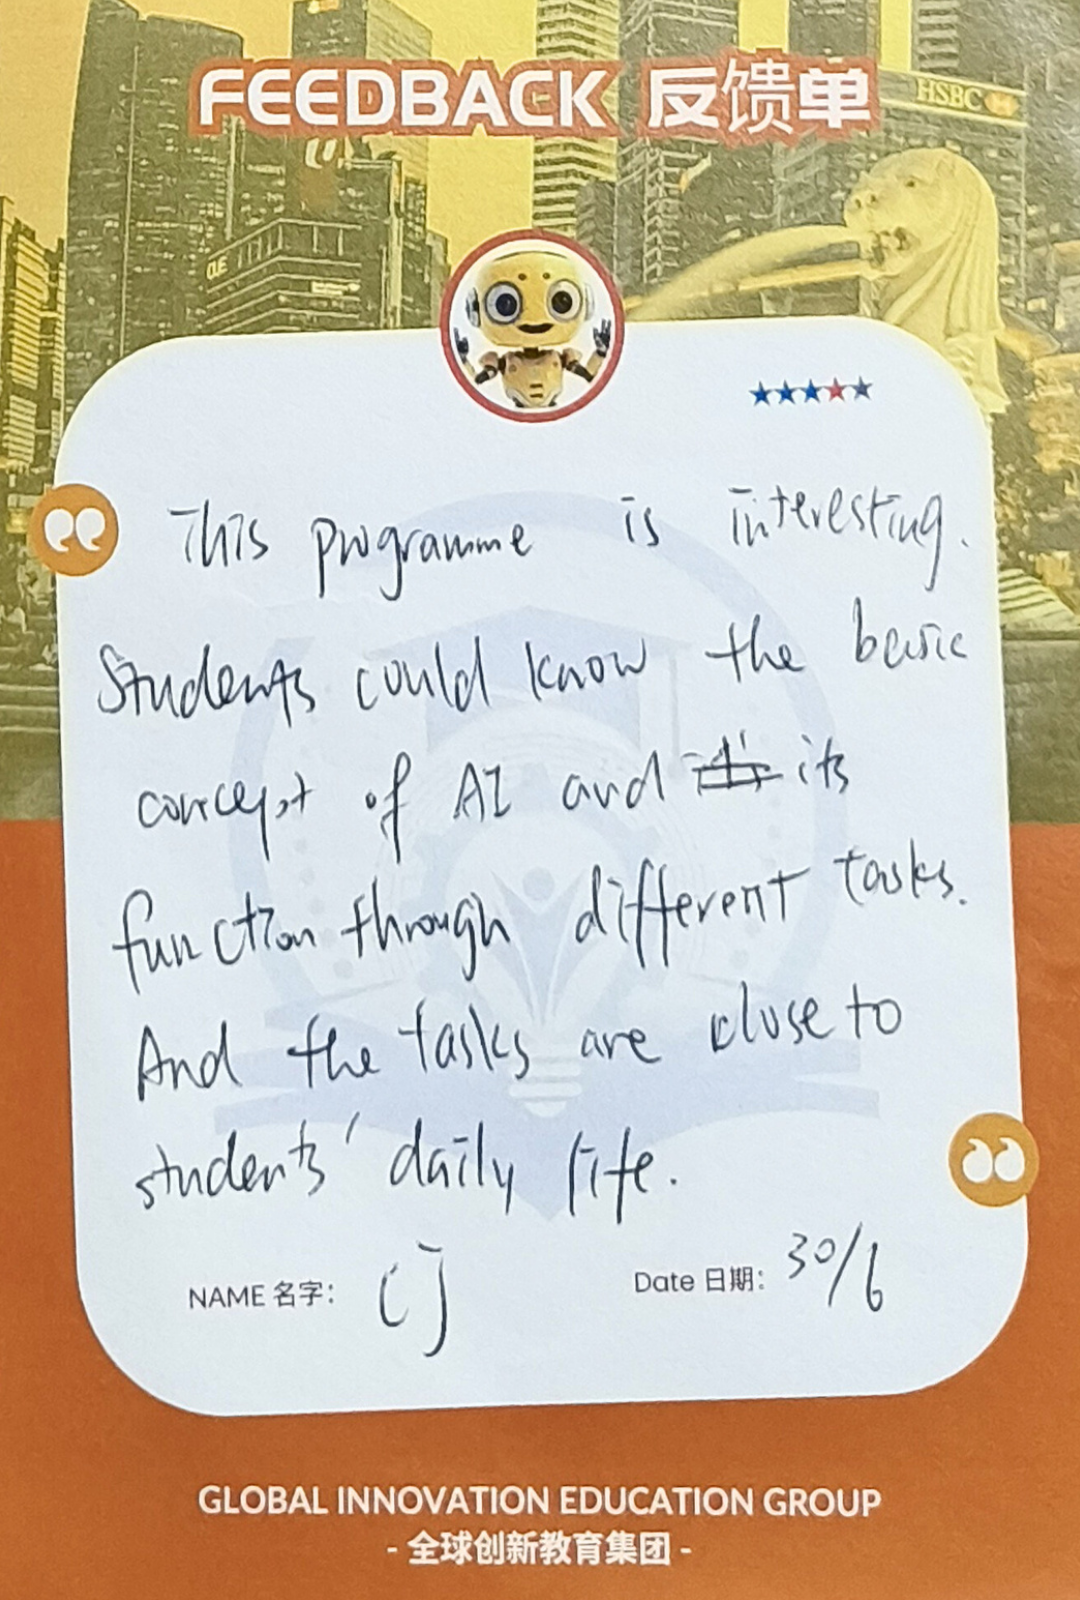 FEEDBACK 反馈单
HSBC
CUE
This programme is interesting.
Students could know the basic
concept of AI and its
function through different tasks.
And the tasks are close to
students' daily life.
NAME 名字: CJ
Date 日期: 30/6
GLOBAL INNOVATION EDUCATION GROUP
- 全球创新教育集团 -